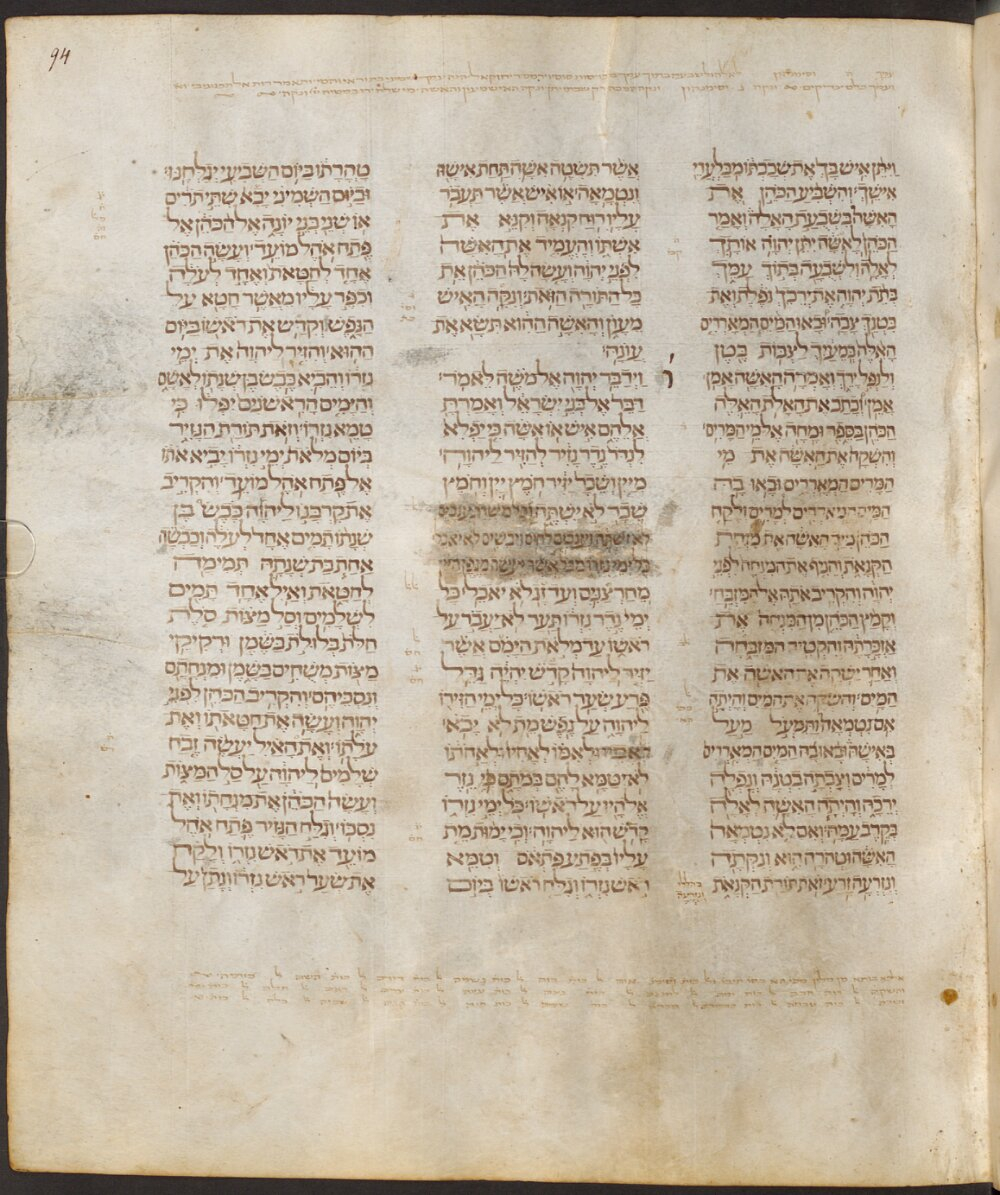 94
ויתן איש בך את שכבתו מבלעדי
אישך והשביע הכהן את
האשה בשבעת האלה ואמר
הכהן לאשה יתן יהוה אותך
לאלה ולשבעה בתוך עמך
בתת יהוה את ירכך נפלת ואת
בטנך צבה ובאו המים המאררים
האלה במעיך לצבות בטן
ולנפל ירך ואמרה האשה אמן
אמן וכתב את האלת האלה
הכהן בספר ומחה אל מי המרים
והשקה את האשה את מי
המרים המאררים ובאו בה
המים המאררים למרים ולקח
הכהן מיד האשה את מנחת
הקנאת והניף את המנחה לפני
יהוה והקריב אתה אל המזבח
וקמץ הכהן מן המנחה את
אזכרתה והקטיר המזבחה
ואחר ישקה את האשה את
המים והשקה את המים והיתה
אם נטמאה ותמעל מעל
באישה ובאו בה המים המאררים
למרים וצבתה בטנה ונפלה
ירכה והיתה האשה לאלה
בקרב עמה ואם לא נטמאה
האשה וטהרה הוא ונקתה
ונזרעה זרע זאת תורת הקנאת
אשר תשטה אשה תחת אישה
ונטמאה או איש אשר תעבר
עליו רוח קנאה וקנא את
אשתו והעמיד את האשה
לפני יהוה ועשה לה הכהן את
כל התורה הזאת ונקה האיש
מעון והאשה ההוא תשא את
עונה
וידבר יהוה אל משה לאמר
דבר אל בני ישראל ואמרת
אלהם איש או אשה כי יפלא
לנדר נדר נזיר להזיר ליהוה
מיין ושכר יזיר חמץ יין וחמץ
שכר לא ישתה וכל משרת ענבים
לא ישתה וענבים לחים ויבשים לא יאכל
כל ימי נזרו מכל אשר יעשה מגפן היין
מחרצנים ועד זג לא יאכל כל
ימי נדר נזרו תער לא יעבר על
ראשו עד מלאת הימם אשר
יזיר ליהוה קדש יהיה גדל
פרע שער ראשו כל ימי הזירו
ליהוה על נפש מת לא יבא
לאביו ולאמו לאחיו ולאחתו
לא יטמא להם במתם כי נזר
אלהיו על ראשו כל ימי נזרו
קדש הוא ליהוה וכי ימות מת
עליו בפתע פתאם וטמא
ראש נזרו וגלח ראשו ביום
טהרתו ביום השביעי יגלחנו
וביום השמיני יבא שתי תרים
או שני בני יונה אל הכהן אל
פתח אהל מועד ועשה הכהן
אחד לחטאת ואחד לעלה
וכפר עליו מאשר חטא על
הנפש וקדש את ראשו ביום
ההוא והזיר ליהוה את ימי
נזרו והביא כבש בן שנתו לאשם
והימים הראשנים יפלו כי
טמא נזרו וזאת תורת הנזיר
ביום מלאת ימי נזרו יביא אתו
אל פתח אהל מועד והקריב
את קרבנו ליהוה כבש בן
שנתו תמים אחד לעלה וכבשה
אחת בת שנתה תמימה
לחטאת ואיל אחד תמים
לשלמים וסל מצות סלת
חלת בלולת בשמן ורקיקי
מצות משחים בשמן ומנחתם
ונסכיהם והקריב הכהן לפני
יהוה ועשה את חטאתו ואת
עלתו ואת האיל יעשה זבח
שלמים ליהוה על סל המצות
ועשה הכהן את מנחתו ואת
נסכו וגלח הנזיר פתח אהל
מועד את ראש נזרו ולקח
את שער ראש נזרו ונתן על